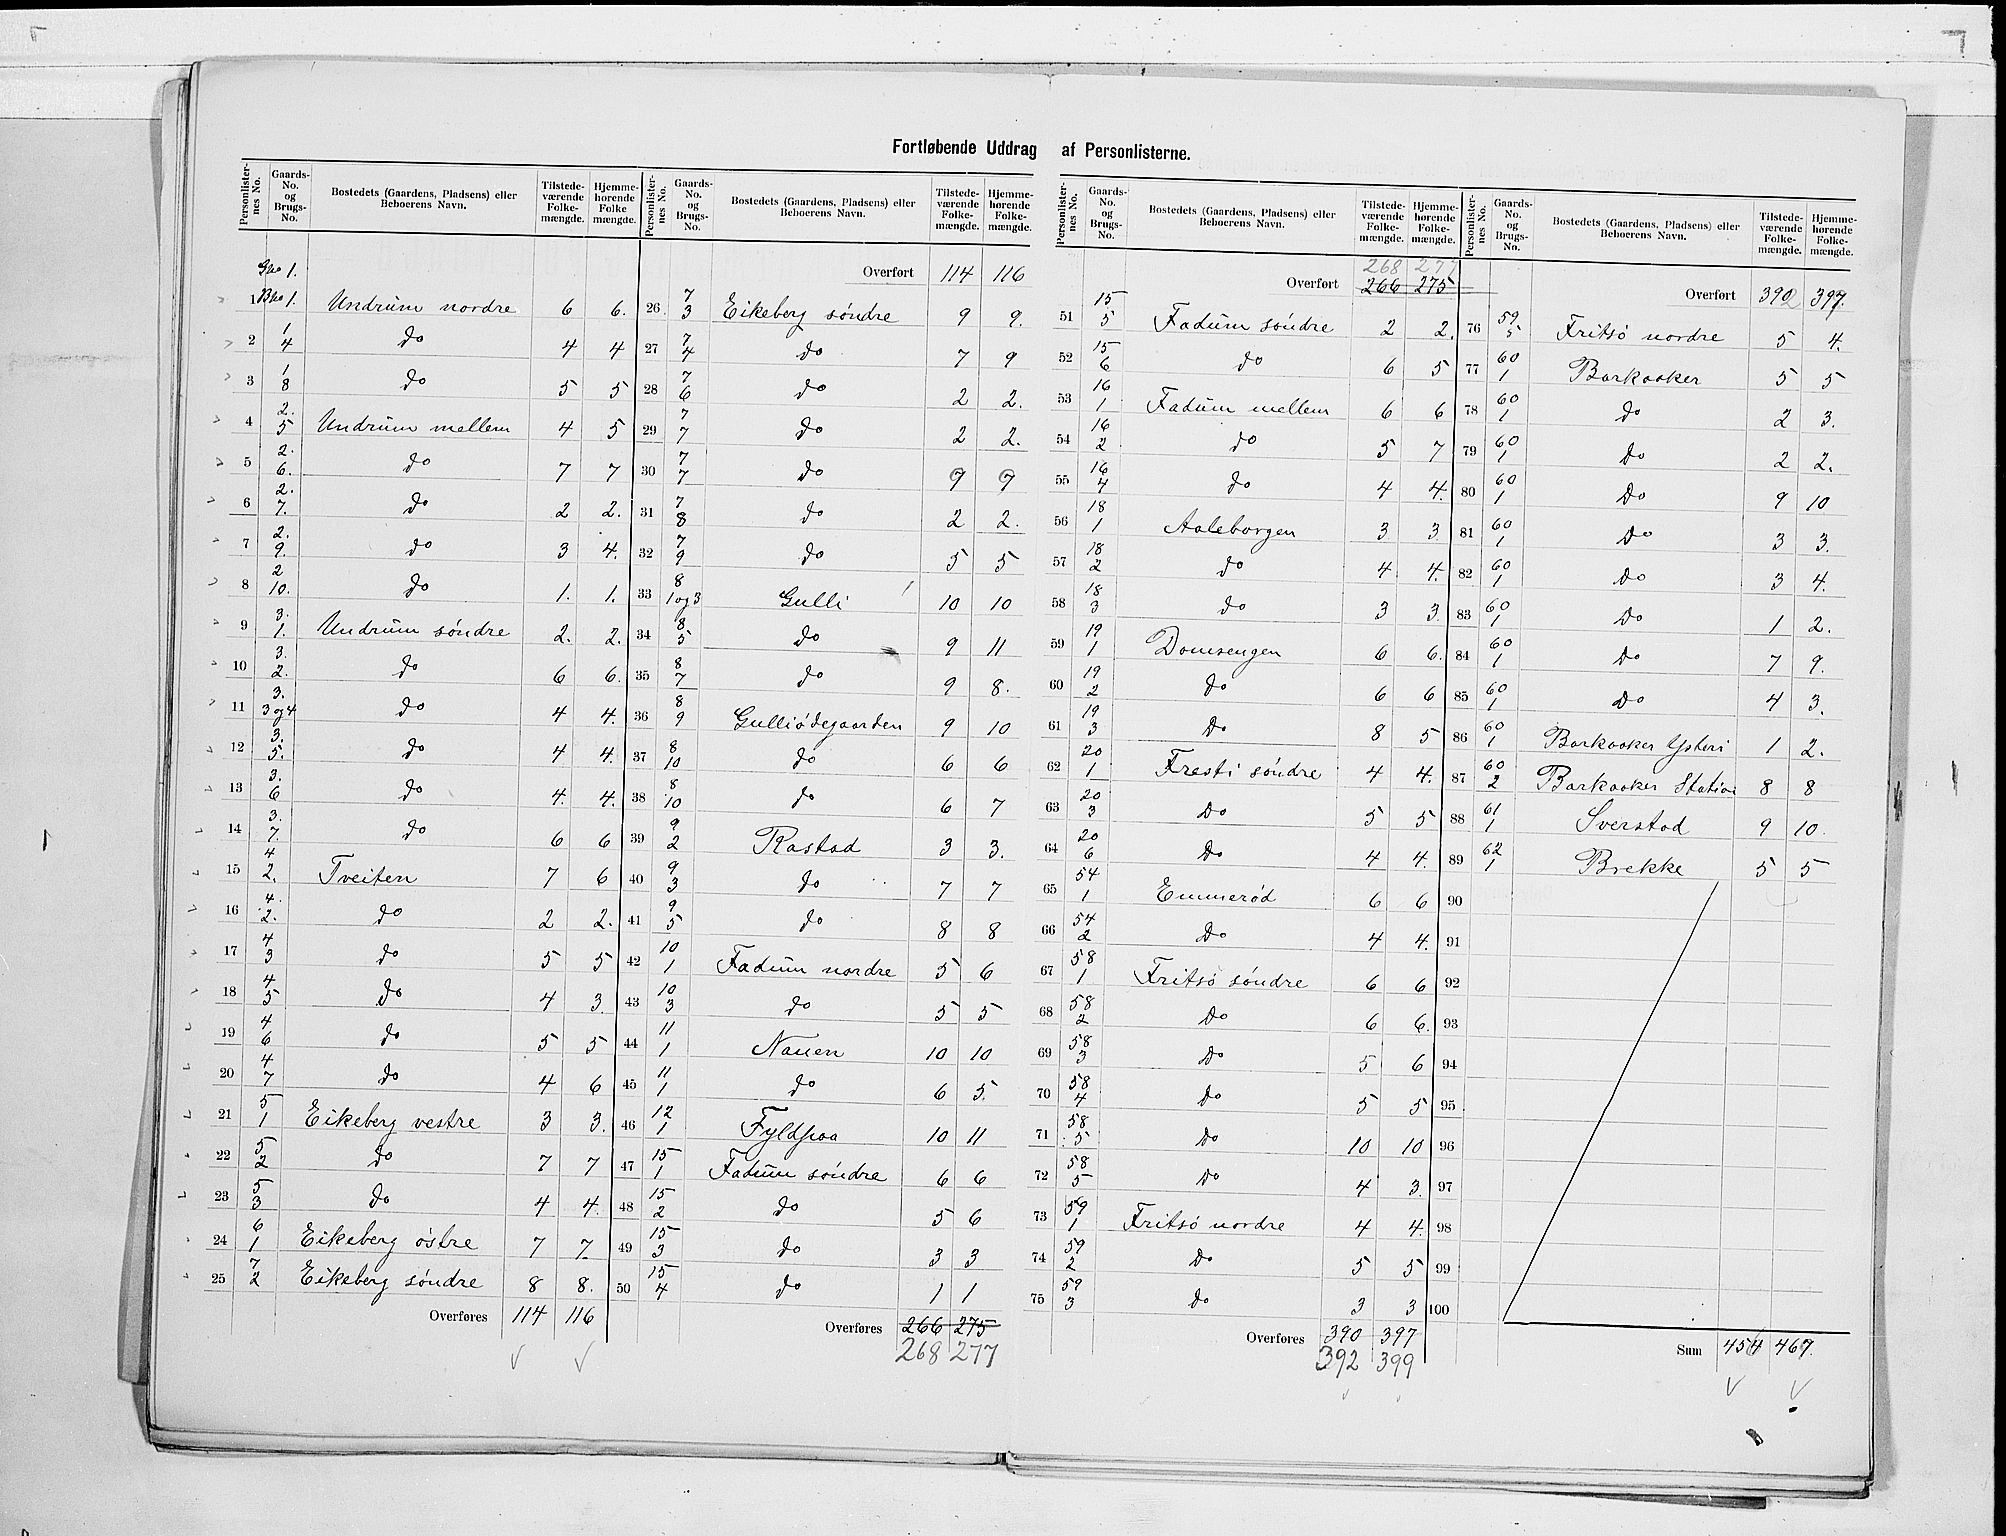 Fortløbende Uddrag af Personlisterne.
Personlister-nes No. | Gaards-No. og Brugs-No. | Bostedets (Gaardens, Pladsens) eller Beboerens Navn. | Tilstede-værende Folke-mængde. | Hjemme-hørende Folke mængde.
Gno 1.
1 | Bno 1. | Undrum nordre | 6 | 6.
2 | 1 4 | do | 4 | 4
3 | 1 8 | do | 5 | 5
4 | 2. 5 | Undrum mellem | 4 | 5
5 | 2. 6. | do | 7 | 7
6 | 2. 7. | do | 2 | 2.
7 | 2. 9. | do | 3 | 4.
8 | 2 10. | do | 1. | 1.
9 | 3. 1. | Undrum søndre | 2. | 2.
10 | 3. 2. | do | 6 | 6.
11 | 3. 3 og 4 | do | 4 | 4.
12 | 3. 5. | do | 4 | 4.
13 | 3. 6 | do | 4. | 4.
14 | 3. 7. | do | 6 | 6
15 | 4 2. | Tveiten | 7 | 6
16 | 4. 2. | do | 2 | 2.
17 | 4 3 | do | 5 | 5
18 | 4 5 | do | 4 | 3.
19 | 4 6 | do | 5 | 5
20 | 4 7 | do | 4 | 6
21 | 5 1 | Eikeberg vestre | 3 | 3.
22 | 5 2 | do | 7 | 7
23 | 5 3 | do | 4 | 4.
24 | 6 1 | Eikeberg østre | 7 | 7
25 | 7 2 | Eikeberg søndre | 8 | 8.
Overføres 114 116
Personlister-nes No. | Gaards-No. og Brugs-No. | Bostedets (Gaardens, Pladsens) eller Beboerens Navn. | Tilstede-værende Folke-mængde. | Hjemme-hørende Folke-mængde.
Overført 114 116
26 | 7 3 | Eikeberg søndre | 9 | 9.
27 | 7 4 | do | 7 | 9
28 | 7 6 | do | 2 | 2.
29 | 7 7 | do | 2 | 2.
30 | 7 7 | do | 9 | 9
31 | 7 8 | do | 2 | 2.
32 | 7 9 | do | 5 | 5
33 | 8 1 og 3 | Gulli | 10 | 10
34 | 8 5 | do | 9 | 11
35 | 8 7 | do | 9 | 8.
36 | 8 9 | Gulliødegaarden | 9 | 10
37 | 8 10 | do | 6 | 6
38 | 8 10 | do | 6 | 7
39 | 9 2 | Rastad | 3 | 3.
40 | 9 3 | do | 7 | 7
41 | 9 5 | do | 8 | 8
42 | 10 1 | Fadum nordre | 5 | 6
43 | 10 3 | do | 5 | 5
44 | 11 1 | Nauen | 10 | 10
45 | 11 1 | do | 6 | 5.
46 | 12 1 | Fyldpaa | 10 | 11
47 | 15 1 | Fadum søndre | 6 | 6
48 | 15 2 | do | 5 | 6
49 | 15 3 | do | 3 | 3
50 | 15 4 | do | 1 | 1
Overføres 266 275
268 277
Personlister-nes No. | Gaards-No. og Brugs-No. | Bostedets (Gaardens, Pladsens) eller Beboerens Navn. | Tilstede-værende Folke-mængde. | Hjemme-hørende Folke-mængde.
268 277
Overført 266 275
51 | 15 5 | Fadum søndre | 2 | 2.
52 | 15 6 | do | 6 | 5
53 | 16 1 | Fadum mellem | 6 | 6
54 | 16 2 | do | 5 | 7
55 | 16 4 | do | 4 | 4.
56 | 18 1 | Aaleborgen | 3 | 3.
57 | 18 2 | do | 4 | 4.
58 | 18 3 | do | 3 | 3.
59 | 19 1 | Domsengen | 6 | 6.
60 | 19 2 | do | 6 | 6
61 | 19 3 | Do | 8 | 5
62 | 20 1 | Fresti søndre | 4 | 4.
63 | 20 3 | Do | 5 | 5
64 | 20 6 | Do | 4 | 4.
65 | 54 1 | Emmerød | 6 | 6
66 | 54 2 | Do | 4 | 4.
67 | 58 1 | Fritsø søndre | 6 | 6
68 | 58 2 | Do | 6 | 6.
69 | 58 3 | Do | 5 | 6
70 | 58 4 | Do | 5 | 5
71 | 58 5 | Do | 10 | 10
72 | 58 5 | Do | 4 | 3.
73 | 59 1 | Fritsø nordre | 4 | 4.
74 | 59 2 | Do | 5 | 5
75 | 59 3 | Do | 3 | 3
Overføres 390 397
392 399
Personlister-nes No. | Gaards-No. og Brugs-No. | Bostedets (Gaardens, Pladsens) eller Beboerens Navn. | Tilstede-værende Folke-mængde. | Hjemme-hørende Folke-mængde.
Overført 392 397.
76 | 59 5 | Fritsø nordre | 5 | 4.
77 | 60 1 | Barkaaker | 5 | 5
78 | 60 1 | Do | 2 | 3.
79 | 60 1 | Do | 2 | 2.
80 | 60 1 | Do | 9 | 10
81 | 60 1 | Do | 3 | 3.
82 | 60 1 | Do | 3 | 4.
83 | 60 1 | Do | 1 | 2.
84 | 60 1 | Do | 7 | 9.
85 | 60 1 | Do | 4 | 3.
86 | 60 1 | Barkaaker Ysteri | 1 | 2.
87 | 60 2 | Barkaaker Station | 8 | 8
88 | 61 1 | Sverstad | 9 | 10.
89 | 62 1 | Brekke | 5 | 5
90
91
92
93
94
95
96
97
98
99
100
Sum 454 467.